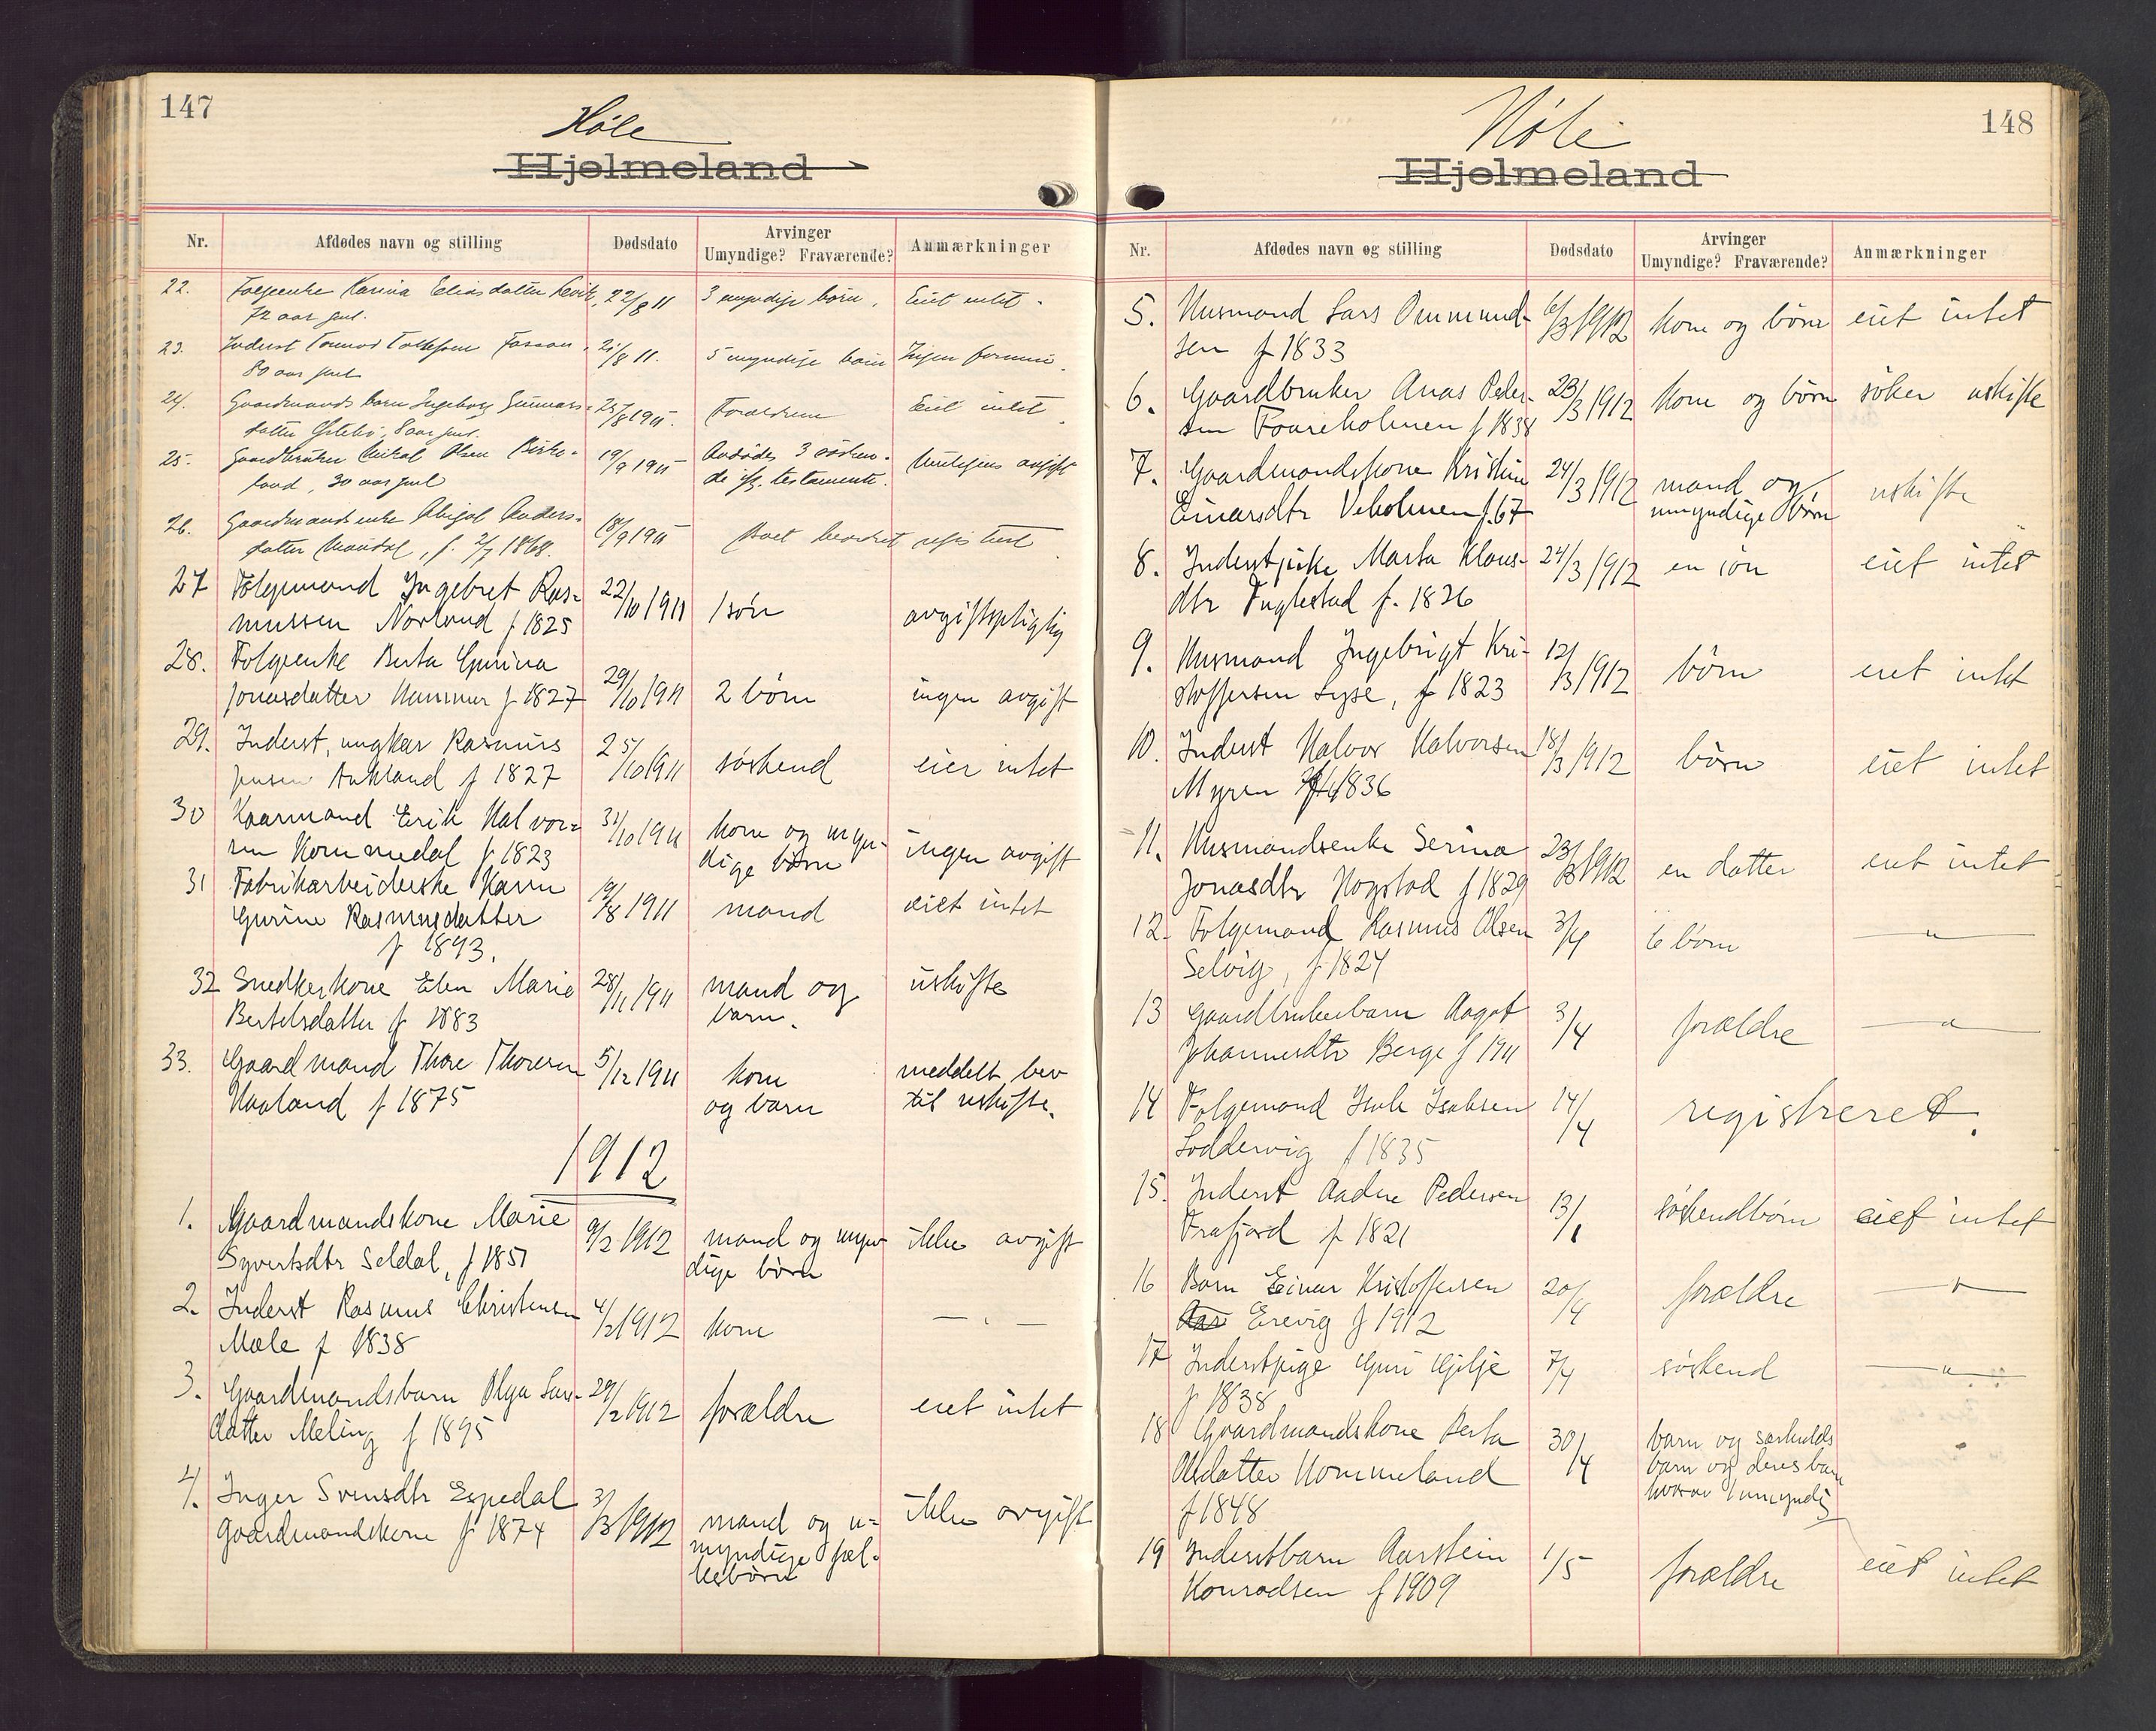 147
Høle
Hjelmeland
Nr. Afdødes navn og stilling Dødsdato Arvinger Anmærkninger
Umyndige? Fraværende?
22. Folgeenke Karina Eliasdatter 22/8 11 3 myndige børn. Eiet intet.
72 aar gml.
23. Inderst 21/8 11. 5 myndige børn Ingen formue.
80 aar gml
24. Gaardmands barn Ingeborg Gunnars- 25/8 1911. Forældrene Eiet intet
datter 8 aar gml.
25. Gaardbruker Mikal Olsen Birke- 19/9 1911 3 søsken-
land, 30 aar gml de testamente.
26. Gaardmands enke Abigal Anders- 18/9 1911 Boet registreret
datter f. 2/7 1868.
27 Følgemand Ingebret Ras- 22/10 1911 1 søn avgiftspligtig
mussen Norland f 1825
28. Folgeenke Berta Gurina
Jonasdatter Hammer f 1827 29/10 1911 2 børn ingen avgift
29. Inderst, ungkar Rasmus 25/10 1911 søskend eier intet
Jensen Aukland f 1827
30 Kaarmand Erik Halvor- 31/10 1911 kone og myn- ingen avgift
sen Kommedal f 1823 dige børn
31 Fabrikarbeiderske Karen 19/8 1911 mand eiet intet
Gurine Rasmusdatter
f 1893.
32 Snedkerkone Elen Marie 28/11 1911 mand og uskifte
Bertelsdatter f 1883 barn.
33. Gaardmand Thore Thoresen 5/12 1911 kone meddelt bev
Haaland f 1875 og barn til uskifte.
1912
1. Gaardmandskone Marie 9/2 1912 mand og myn- ikke avgift
Syvertsdtr Seldal, f 1851 dige børn
2. Inderst Rasmus Christensen 4/2 1912 kone — " —
Mæle f 1838
3. Gaardmandsbarn Olga Lars- 29/2 1912 forældre eiet intet
datter Meling f 1895
4. Inger Svensdtr Espedal 3/3 1912 mand og u- ikke avgift
gaardmandskone f 1874 myndige fæl-
lesbørn
148
Høle
Hjelmeland
Nr. Afdødes navn og stilling Dødsdato Arvinger Anmærkninger
Umyndige? Fraværende?
5. Husmand Lars Ommund- 6/3 1912 kone og børn eiet intet
sen f 1833
6. Gaardbruker Anas Peder- 23/3 1912 kone og børn søker uskifte
sen Foureholmen f 1838
7. Gaardmandskone Kristine 24/3 1912 mand og uskifte
Einarsdtr Veholmen f. 67 umyndige børn
8. Inderstpike Marta Klaus- 24/3 1912 en søn eiet intet
dtr Fuglestad f. 1826
9. Husmand Ingebrigt Kri- 12/3 1912 børn eiet intet
stoffersen Lyse, f 1823
10. Inderst Halvor Halvorsen 18/3 1912 børn eiet intet
Myren 1836
11. Husmandsenke Serina 23/3 1912 en datter eiet intet
Jonasdtr Hogstad f 1829
12. Folgemand Rasmus Olsen 3/4 6 børn — " —
Selvig, f 1824
13 Gaardbrukerbarn Aagot 3/4 forældre — " —
Johannesdtr Berge f 1911
14 Følgemand Isak Isaksen 14/4 registreret.
Loddervig f 1835
15. Inderst Aadne Pedersen 13/1 søskendbørn eiet intet
Frafjord f 1821
16 Barn Einar Kristoffersen 20/4 forældre — " —
Erevig f 1912
17 Inderstpige Guri Gjilje 7/4 søskend — " —
f 1838
18 Gaardmandskone Berta 30/4 barn og særkulds
Olsdatter Hommeland barn og deres barn
f 1848 hvorav 1 umyndig
19 Inderstbarn Aarstein 1/5 forældre eiet intet
Konradsen f 1909